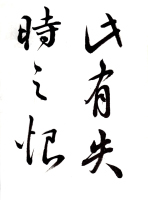 此有失
時之恨